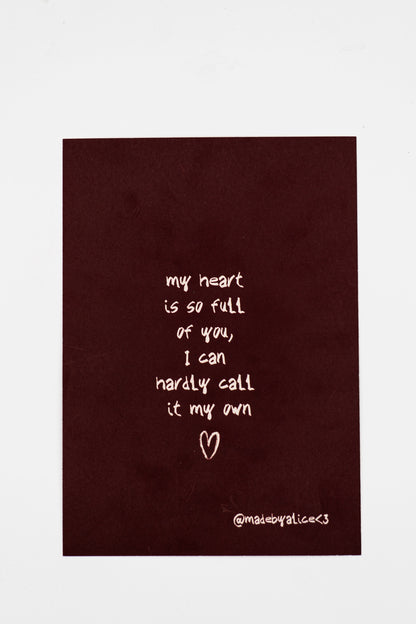 my heart
is so full
of you,
I can
hardly call
it my own
@madebyalice<3